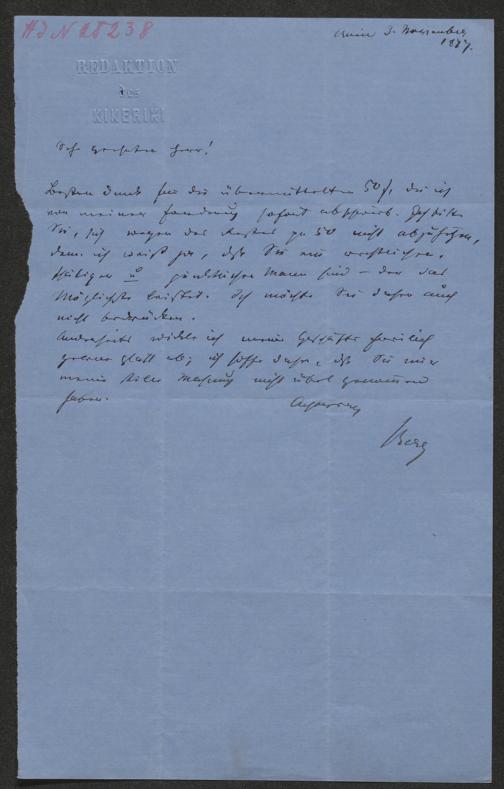 HJN 28238
Wien 3. November
1877.
REDAKTION
des
KIKERIKI
Sehr geehrter Herr!
Besten Dank für die übermittelten 50 f, die ich
von meiner Forderung sofort abschrieb. Ich bitte
Sie, sich wegen des Restes zu 50 nicht abzuhetzen,
denn ich weiß ja, daß Sie ein rechtlicher,
thätiger u pünktlicher Mann sind – der das
Möglichste leistet. Ich möchte Sie daher auch
nicht bedrücken.
Anderseits wickle ich meine Geschäfte freilich
gerne glatt ab; ich hoffe daher, daß Sie mir
meine Mahnung nicht übel genommen
haben.
Achtungsv
Berg